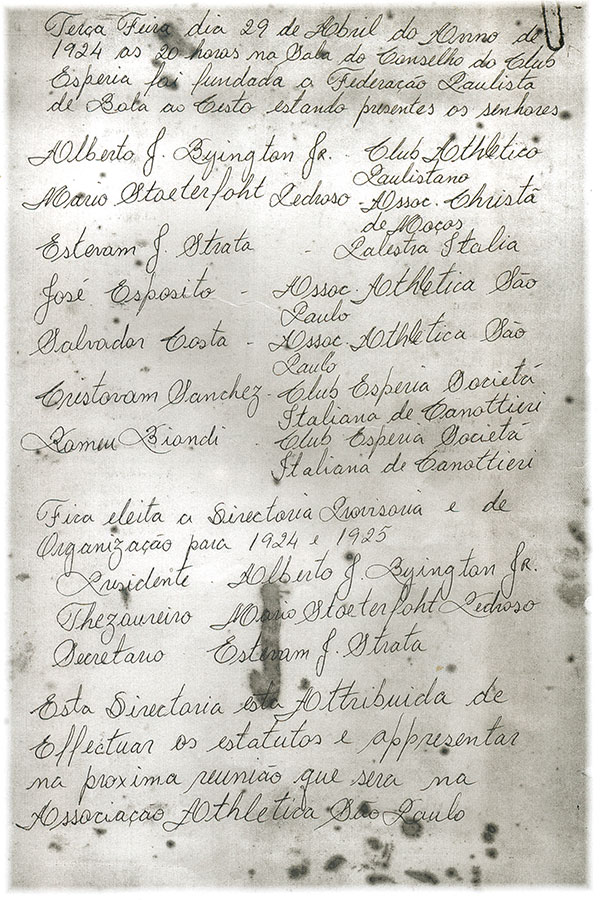 Terça Feira dia 29 de Abril do Anno de
1924 as 20 horas na Sala do Conselho do Club
Esperia foi fundada a Federação Paulista
de Bola ao Cesto estando presentes os senhores
Alberto J. Byington Jr. - Club Athletico
Paulistano
Mario Stoeterfoht Pedroso - Assoc. Christã
de Moços
Estevam J. Strata - Palestra Italia
José Esposito - Assoc. Athletica São
Paulo
Salvador Costa - Assoc. Athletica São
Paulo
Cristovam Sanchez - Club Esperia Societá
Italiana de Canottieri
Romeu Biandi - Club Esperia Societá
Italiana de Canottieri
Fica eleita a Directoria Provisoria e de
Organização para 1924 e 1925
Presidente Alberto J. Byington Jr.
Thezaureiro Mario Stoeterfoht Pedroso
Secretario Estevam J. Strata
Esta Directoria está Attribuida de
Effectuar os estatutos e appresentar
na proxima reunião que sera na
Associação Athletica São Paulo